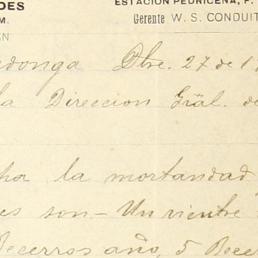 DES
ESTACION PEDRICEÑA, F.
M.
Gerente W. S. CONDUIT
EN
donga Dbre. 27 de 1
la Direccion Gral. de
ha la mortandad
es son - Un vientre
Becerros año, 5 Bece